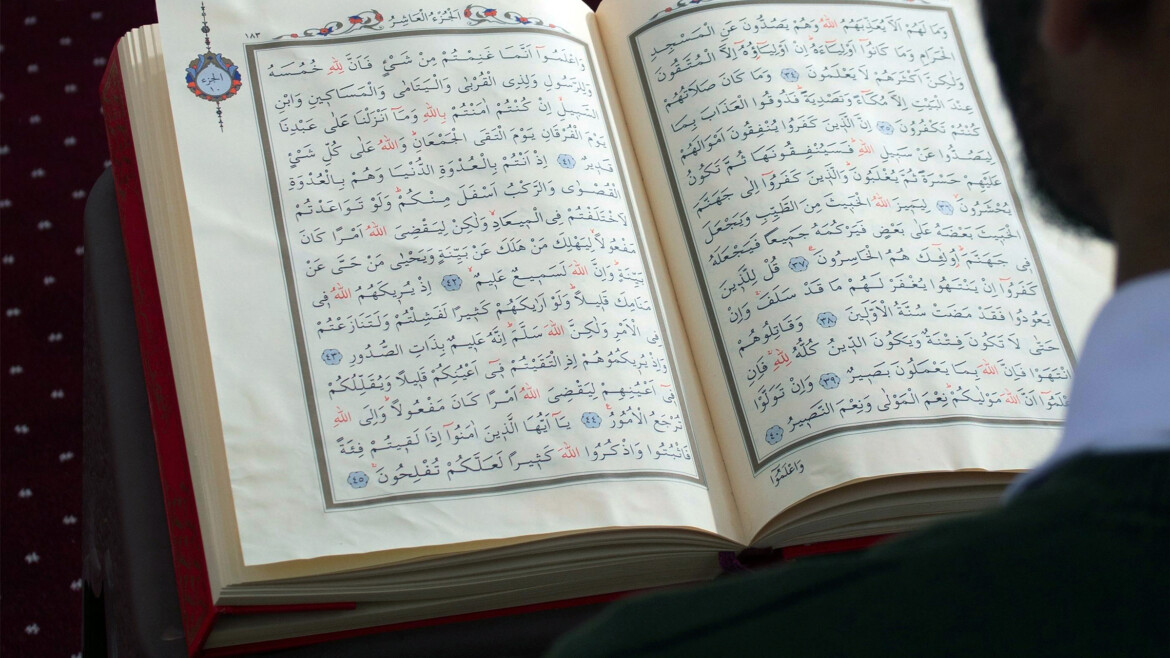 وَمَا لَهُمْ اَلَّا يُعَذِّبَهُمُ اللّٰهُ وَهُمْ يَصُدُّونَ عَنِ الْمَسْجِدِ
الْحَرَامِ وَمَا كَانُٓوا اَوْلِيَٓاءَهُۜ اِنْ اَوْلِيَٓاؤُ۬هُٓ اِلَّا الْمُتَّقُونَ
وَلٰكِنَّ اَكْثَرَهُمْ لَا يَعْلَمُونَ ٣٤ وَمَا كَانَ صَلَاتُهُمْ
عِنْدَ الْبَيْتِ اِلَّا مُكَٓاءً وَتَصْدِيَةًۜ فَذُوقُوا الْعَذَابَ بِمَا
كُنْتُمْ تَكْفُرُونَ ٣٥ اِنَّ الَّذِينَ كَفَرُوا يُنْفِقُونَ اَمْوَالَهُمْ
لِيَصُدُّوا عَنْ سَبِيلِ اللّٰهِۜ فَسَيُنْفِقُونَهَا ثُمَّ تَكُونُ
عَلَيْهِمْ حَسْرَةً ثُمَّ يُغْلَبُونَۜ وَالَّذِينَ كَفَرُٓوا اِلٰى جَهَنَّمَ
يُحْشَرُونَۙ ٣٦ لِيَمِيزَ اللّٰهُ الْخَبِيثَ مِنَ الطَّيِّبِ وَيَجْعَلَ
الْخَبِيثَ بَعْضَهُ عَلٰى بَعْضٍ فَيَرْكُمَهُ جَمِيعًا فَيَجْعَلَهُ
فِي جَهَنَّمَۜ اُو۬لٰٓئِكَ هُمُ الْخَاسِرُونَ۟ ٣٧ قُلْ لِلَّذِينَ
كَفَرُٓوا اِنْ يَنْتَهُوا يُغْفَرْ لَهُمْ مَا قَدْ سَلَفَۚ وَاِنْ
يَعُودُوا فَقَدْ مَضَتْ سُنَّةُ الْاَوَّلِينَ ٣٨ وَقَاتِلُوهُمْ
حَتّٰى لَا تَكُونَ فِتْنَةٌ وَيَكُونَ الدِّينُ كُلُّهُ لِلّٰهِۚ فَاِنِ
انْتَهَوْا فَاِنَّ اللّٰهَ بِمَا يَعْمَلُونَ بَصِيرٌ ٣٩ وَاِنْ تَوَلَّوْا
اَنَّ اللّٰهَ مَوْلٰيكُمْۜ نِعْمَ الْمَوْلٰى وَنِعْمَ النَّصِيرُ ٤٠
وَاعْلَمُٓوا
١٨٣ اَلْجُزْءُ الْعَاشِرُ
الجزء ١٠
وَاعْلَمُٓوا اَنَّمَا غَنِمْتُمْ مِنْ شَيْءٍ فَاَنَّ لِلّٰهِ خُمُسَهُ
وَلِلرَّسُولِ وَلِذِي الْقُرْبٰى وَالْيَتَامٰى وَالْمَسَاكِينِ وَابْنِ
السَّبِيلِۙ اِنْ كُنْتُمْ اٰمَنْتُمْ بِاللّٰهِ وَمَٓا اَنْزَلْنَا عَلٰى عَبْدِنَا
يَوْمَ الْفُرْقَانِ يَوْمَ الْتَقَى الْجَمْعَانِۜ وَاللّٰهُ عَلٰى كُلِّ شَيْءٍ
قَدِيرٌ ٤١ اِذْ اَنْتُمْ بِالْعُدْوَةِ الدُّنْيَا وَهُمْ بِالْعُدْوَةِ
الْقُصْوٰى وَالرَّكْبُ اَسْفَلَ مِنْكُمْۜ وَلَوْ تَوَاعَدْتُمْ
لَاخْتَلَفْتُمْ فِي الْمِيعَادِۙ وَلٰكِنْ لِيَقْضِيَ اللّٰهُ اَمْرًا كَانَ
مَفْعُولًاۙ لِيَهْلِكَ مَنْ هَلَكَ عَنْ بَيِّنَةٍ وَيَحْيٰى مَنْ حَيَّ عَنْ
بَيِّنَةٍۜ وَاِنَّ اللّٰهَ لَسَمِيعٌ عَلِيمٌۙ ٤٢ اِذْ يُرِيكَهُمُ اللّٰهُ فِي
مَنَامِكَ قَلِيلًاۜ وَلَوْ اَرٰيكَهُمْ كَثِيرًا لَفَشِلْتُمْ وَلَتَنَازَعْتُمْ
فِي الْاَمْرِ وَلٰكِنَّ اللّٰهَ سَلَّمَۜ اِنَّهُ عَلِيمٌ بِذَاتِ الصُّدُورِ ٤٣
وَاِذْ يُرِيكُمُوهُمْ اِذِ الْتَقَيْتُمْ فِٓي اَعْيُنِكُمْ قَلِيلًا وَيُقَلِّلُكُمْ
فِٓي اَعْيُنِهِمْ لِيَقْضِيَ اللّٰهُ اَمْرًا كَانَ مَفْعُولًاۜ وَاِلَى اللّٰهِ
تُرْجَعُ الْاُمُورُ۟ ٤٤ يَٓا اَيُّهَا الَّذِينَ اٰمَنُٓوا اِذَا لَقِيتُمْ فِئَةً
فَاثْبُتُوا وَاذْكُرُوا اللّٰهَ كَثِيرًا لَعَلَّكُمْ تُفْلِحُونَۚ ٤٥